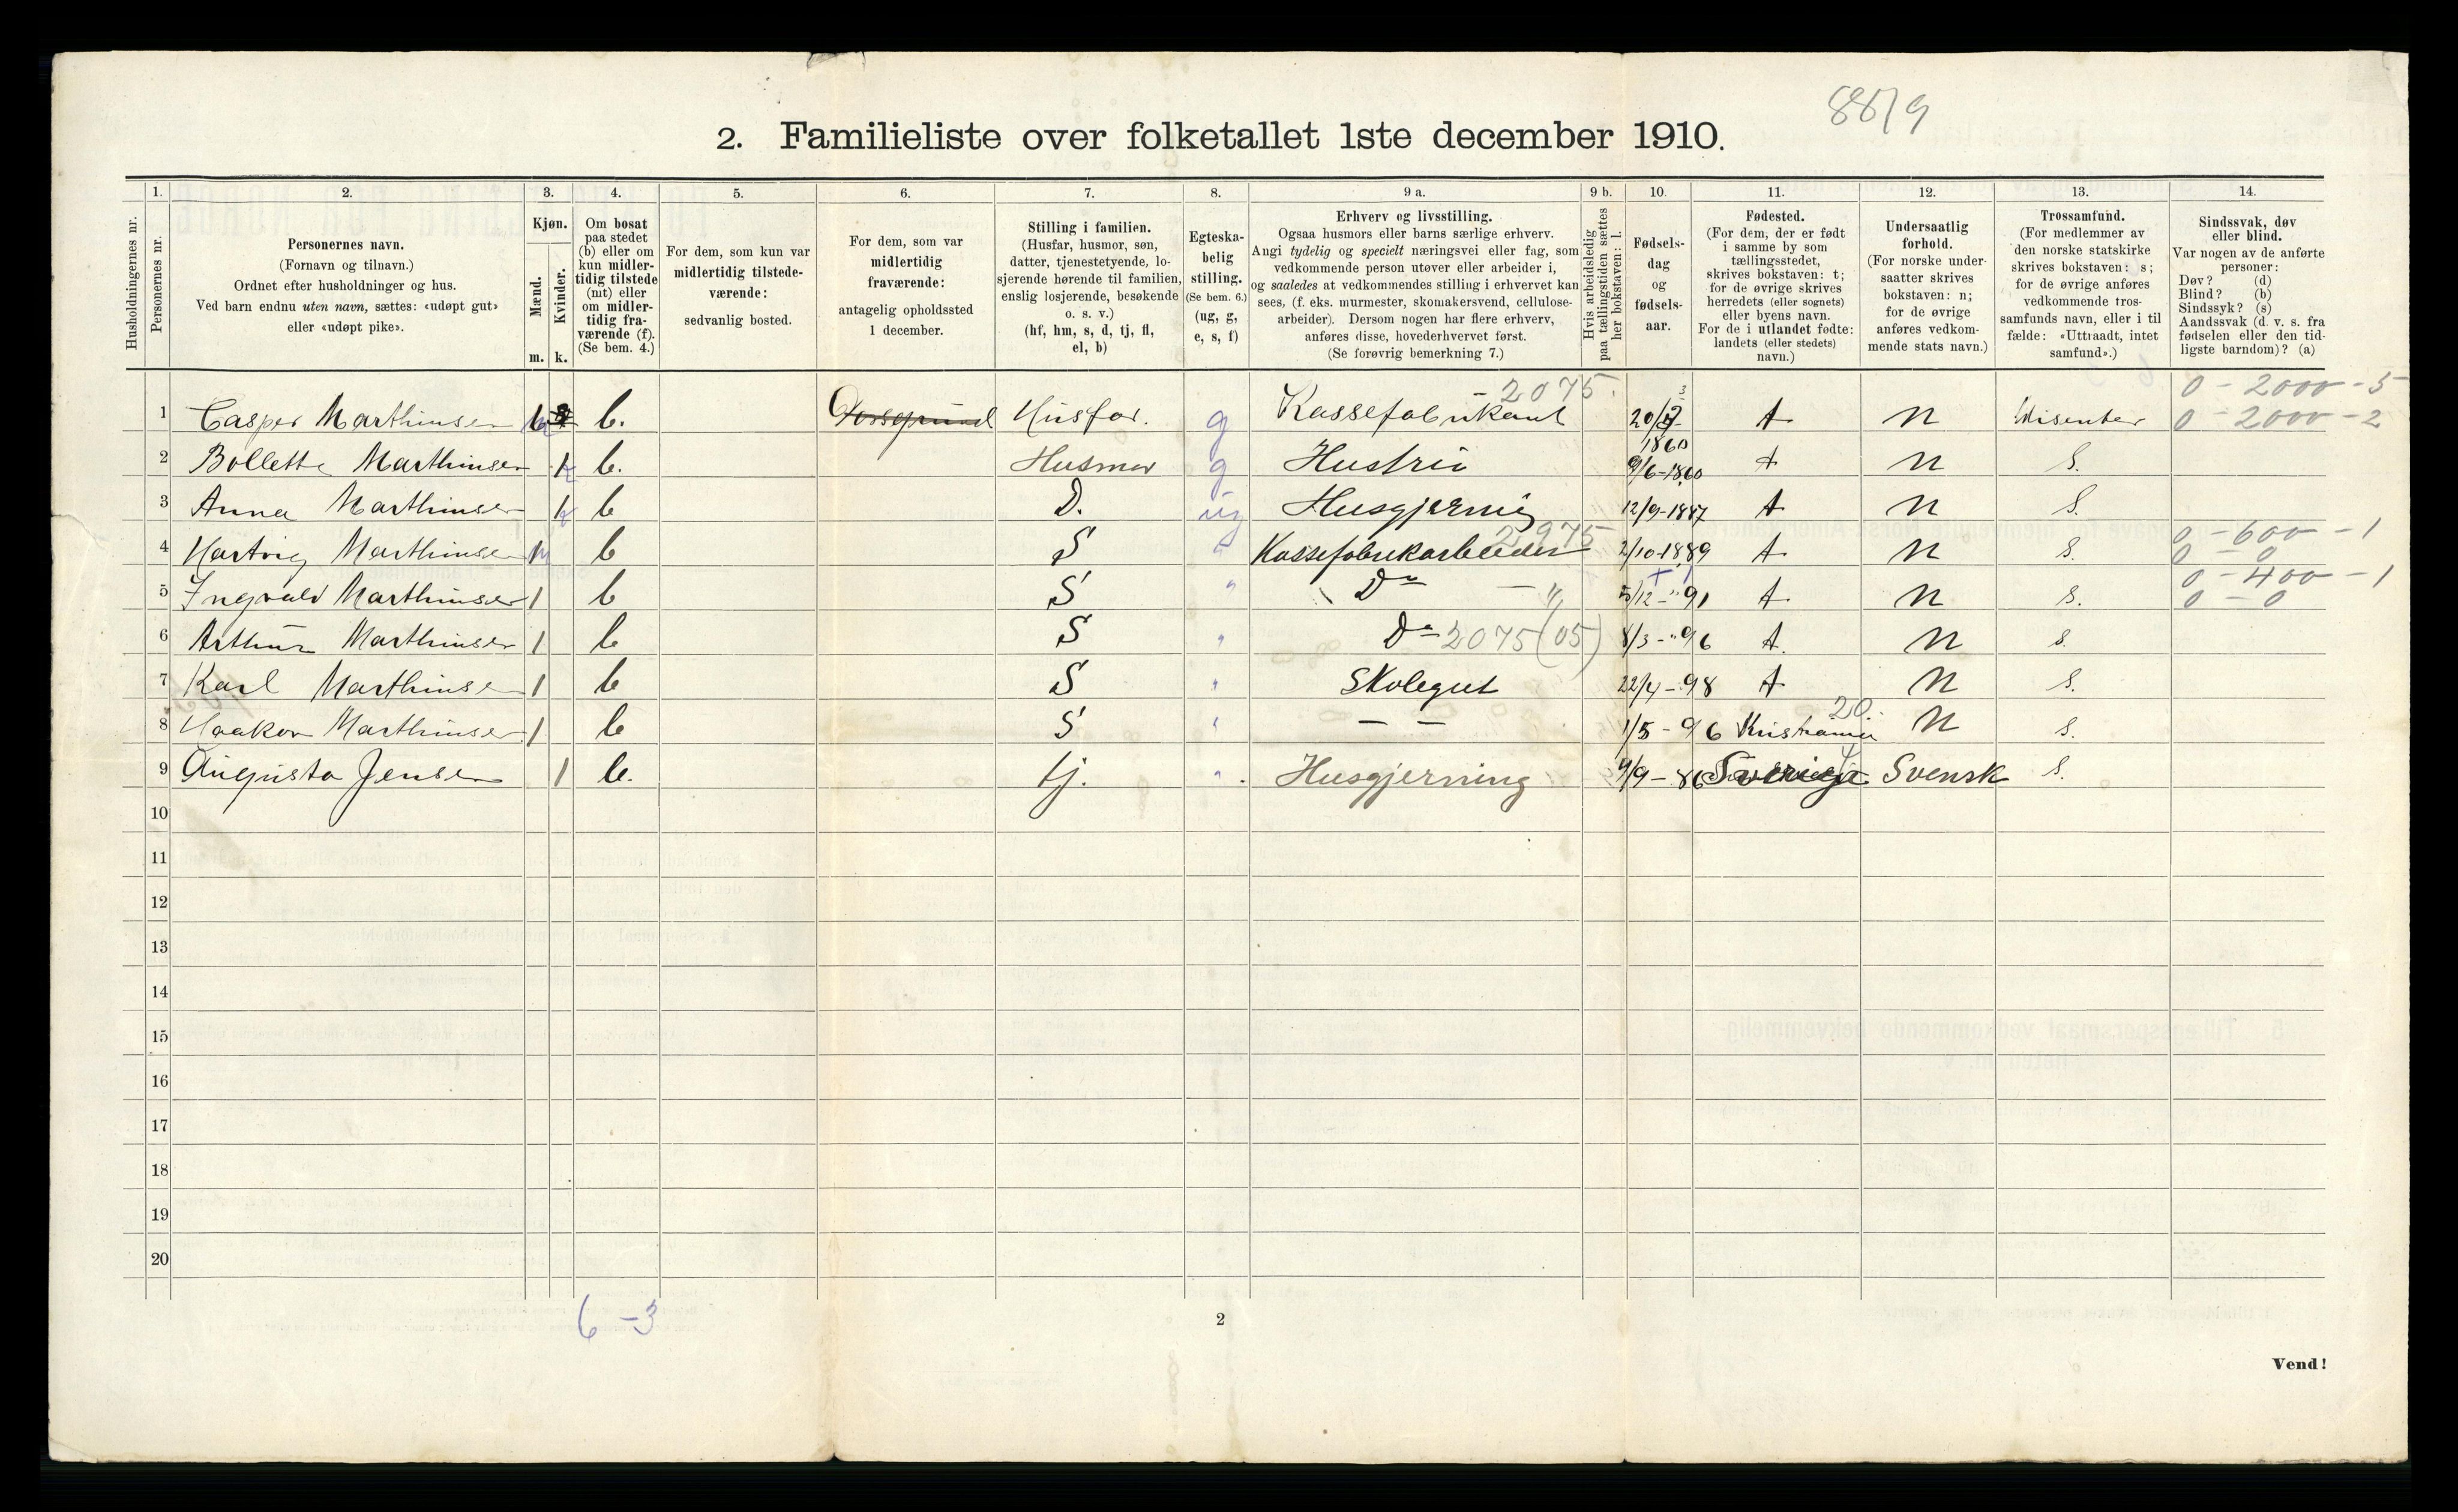 8819
2. Familieliste over folketallet 1ste december 1910.
Husholdningernes nr.
1. Personernes nr.
2. Personernes navn.
(Fornavn og tilnavn.)
Ordnet efter husholdninger og hus.
Ved barn endnu uten navn, sættes: «udøpt gut»
eller «udøpt pike».
3. Kjøn.
Mænd. m.
Kvinder. k.
4. Om bosat
paa stedet
(b) eller om
kun midler-
tidig tilstede
(mt) eller
om midler-
tidig fra-
værende (f).
(Se bem. 4.)
5. For dem, som kun var
midlertidig tilstede-
værende:
sedvanlig bosted.
6. For dem, som var
midlertidig
fraværende:
antagelig opholdssted
1 december.
7. Stilling i familien.
(Husfar, husmor, søn,
datter, tjenestetyende, lo-
sjerende hørende til familien,
enslig losjerende, besøkende
o. s. v.)
(hf, hm, s, d, tj, fl,
el, b)
8. Egteska-
belig
stilling.
(Se bem. 6.)
(ug, g,
e, s, f)
9 a. Erhverv og livsstilling.
Ogsaa husmors eller barns særlige erhverv.
Angi tydelig og specielt næringsvei eller fag, som
vedkommende person utøver eller arbeider i,
og saaledes at vedkommendes stilling i erhvervet kan
sees, (f. eks. murmester, skomakersvend, cellulose-
arbeider). Dersom nogen har flere erhverv,
anføres disse, hovederhvervet først.
(Se forøvrig bemerkning 7.)
9 b. Hvis arbeidsledig
paa tællingstiden sættes
her bokstaven: l.
10. Fødsels-
dag
og
fødsels-
aar.
11. Fødested.
(For dem, der er født
i samme by som
tællingsstedet,
skrives bokstaven: t;
for de øvrige skrives
herredets (eller sognets)
eller byens navn.
For de i utlandet fødte:
landets (eller stedets)
navn.)
12. Undersaatlig
forhold.
(For norske under-
saatter skrives
bokstaven: n;
for de øvrige
anføres vedkom-
mende stats navn.)
13. Trossamfund.
(For medlemmer av
den norske statskirke
skrives bokstaven: s;
for de øvrige anføres
vedkommende tros-
samfunds navn, eller i til
fælde: «Uttraadt, intet
samfund».)
14. Sindssvak, døv
eller blind.
Var nogen av de anførte
personer:
Døv? (d)
Blind? (b)
Sindssyk? (s)
Aandssvak (d. v. s. fra
fødselen eller den tid-
ligste barndom)? (a)
2075. 0 - 2000 - 5
1 Casper Marthinsen b. Husfar. g Kassefabrikant 20/3 1860 t n Disenter 0 - 2000 - 2
2 Bollette Marthinsen 1 b. Husmor g Hustru 9/6-1860 t n S.
3 Anna Marthinsen 1 b D. ug Husgjerning 12/9-1887 t n S.
2975 0 - 600 - 1
4 Hartvig Marthinsen 1 b S " Kassefabrikarbeider 2/10-1889 t n S. 0 - 0
0 - 400 - 1
5 Ingvald Marthinsen 1 b S " Do — " 5/12 - "91 t n S. 0 - 0
6 Arthur Marthinsen 1 b S " Do 2075 (05) 8/3 - "96 t. n S.
7 Karl Marthinsen 1 b S " Skolegut 22/4 - 98 t n S.
20.
8 Haakon Marthinsen 1 b S " — — 1/5 - 96 Kristiania n S.
9 Augusta Jensen 1 b. tj. " Husgjerning 9/9 - 86 Sverige Svensk S.
10
11
12
13
14
15
16
17
18
19
20
6 - 3
2
Vend!